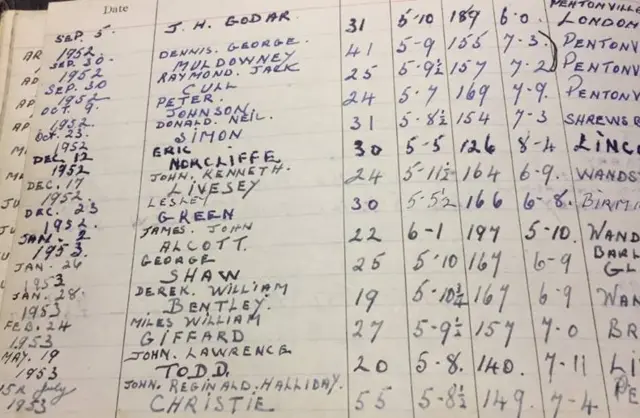 Date
PENTONVILLE
SEP. 5. J. H. GODAR. 31 5-10 189 6-0. LONDON
1952. DENNIS. GEORGE.
SEP. 30. MULDOWNEY 41 5-9 155 7-3. PENTONV
1952 RAYMOND. JACK
SEP. 30 CULL 25 5-9½ 157 7-2 PENTONV
1952 PETER.
OCT. 9. JOHNSON 24 5-7 169 7-9. PENTONV
1952 DONALD. NEIL.
OCT. 23. SIMON 31 5-8½ 154 7-3 SHREWS
1952 ERIC
DEC. 12 NORCLIFFE 30 5-5 126 8-4 LINCO
1952 JOHN. KENNETH.
DEC. 17 LIVESEY 24 5-11½ 164 6-9. WANDS
1952. LESLEY
DEC. 23 GREEN 30 5-5½ 166 6-8. BIRMI
1952. JAMES. JOHN
JAN. 2 ALCOTT. 22 6-1 197 5-10. WAND
1953. GEORGE BARL
JAN. 26 SHAW 25 5-10 167 6-9 GL
1953 DEREK. WILLIAM
JAN. 28. BENTLEY. 19 5-10¾ 167 6-9 WAN
1953 MILES WILLIAM
FEB. 24 GIFFARD 27 5-9½ 157 7-0 BR
1953 JOHN. LAWRENCE.
MAY. 19 TODD. 20 5-8. 140. 7-11 LI
1953 JOHN. REGINALD. HALLIDAY.
July CHRISTIE 55 5-8½ 149. 7-4. PE
1953